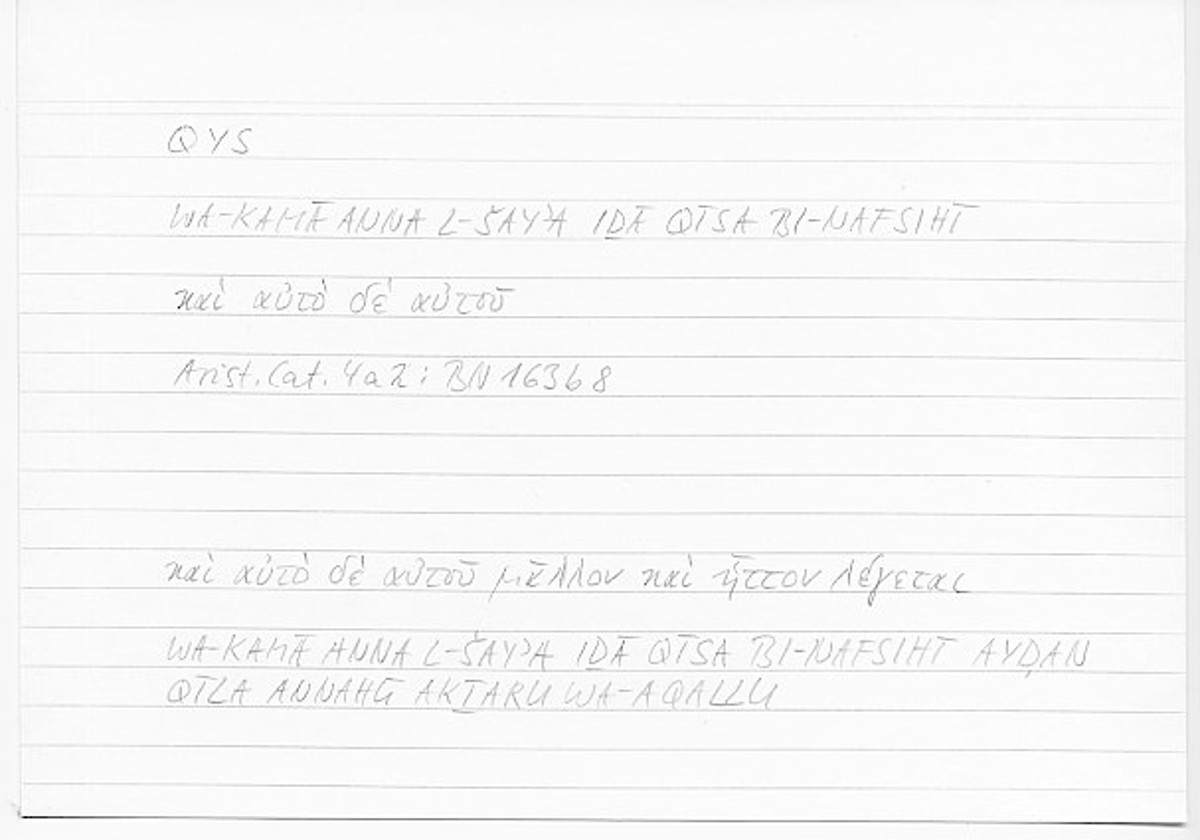 QYS
WA-KAMĀ ANNA L-ŠAYʾA IḎĀ QĪSA BI-NAFSIHĪ
καὶ αὐτὸ δὲ αὑτοῦ
Arist. Cat. 4a2: BN 16368
καὶ αὐτὸ δὲ αὑτοῦ μᾶλλον καὶ ἧττον λέγεται
WA-KAMĀ ANNA L-ŠAYʾA IḎĀ QĪSA BI-NAFSIHĪ AYḌAN
QĪLA ANNAHŪ AKṮARU WA-AQALLU